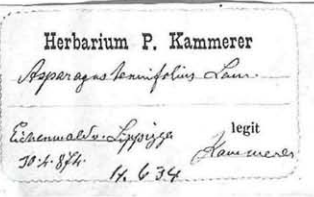 Herbarium P. Kammerer
Asparagus tenuifolius Lam.
Eichenwald v. Lippizza
legit
30.4.874.
Kammerer